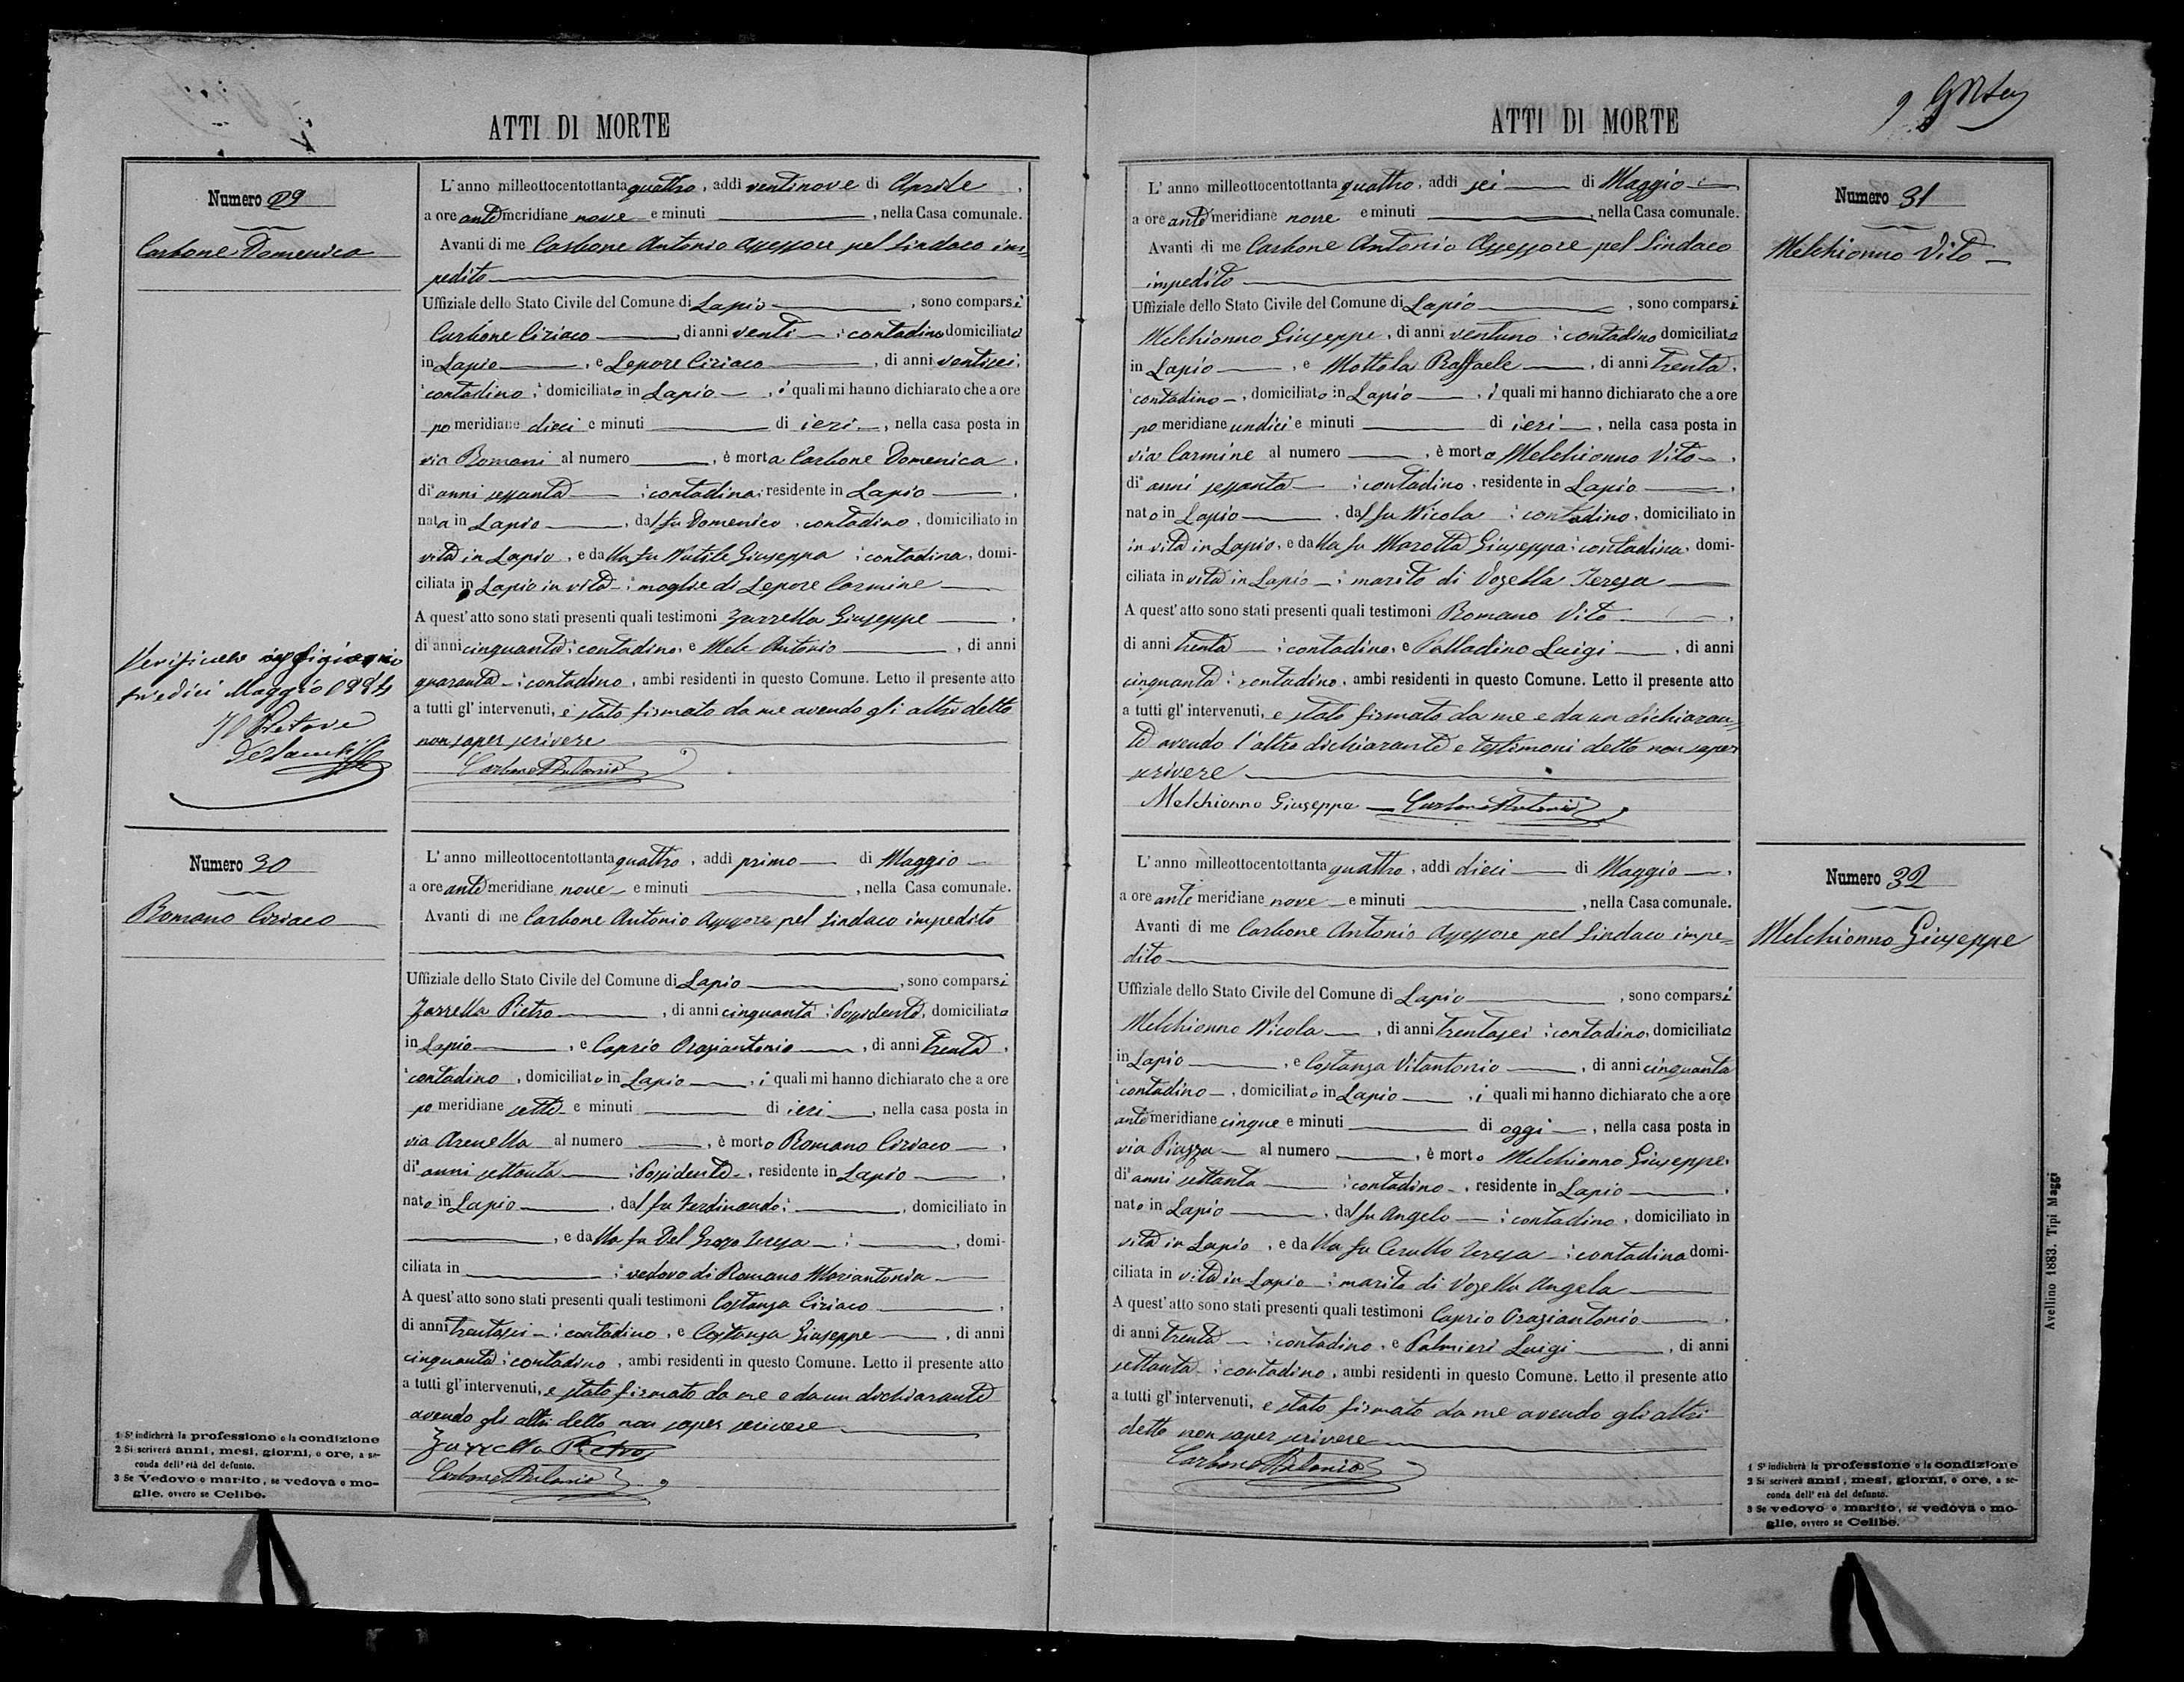 ATTI DI MORTE
Numero 29
Carbone Domenica
L'anno milleottocentottanta quattro, addi ventinove di Aprile,
a ore antemeridiane nove e minuti, nella Casa comunale.
Avanti di me Carbone Antonio Assessore pel Sindaco im=
pedito
Uffiziale dello Stato Civile del Comune di Lapio, sono comparsi
Carbone Ciriaco, di anni venti, contadino domiciliato
in Lapio, e Lepore Ciriaco, di anni ventisei,
contadino, domiciliato in Lapio, i quali mi hanno dichiarato che a ore
pomeridiane dieci e minuti di ieri, nella casa posta in
via Romani al numero, è morta Carbone Domenica,
di anni sessanta, contadina, residente in Lapio,
nata in Lapio, dal fu Domenico, contadino, domiciliato in
vita in Lapio, e dalla fu Nutile Giuseppa, contadina, domi-
ciliata in Lapio in vita, moglie di Lepore Carmine
A quest'atto sono stati presenti quali testimoni Zarrella Giuseppe,
di anni cinquanta, contadino, e Mele Antonio, di anni
quaranta, contadino, ambi residenti in questo Comune. Letto il presente atto
a tutti gl'intervenuti, è stato firmato da me avendo gli altri detto
non saper scrivere
Carbone Antonio
Verificato oggi
tredici Maggio 1884
Il Pretore
Numero 30
Romano Ciriaco
L'anno milleottocentottanta quattro, addi primo di Maggio
a ore antemeridiane nove e minuti, nella Casa comunale.
Avanti di me Carbone Antonio Assessore pel Sindaco impedito
Uffiziale dello Stato Civile del Comune di Lapio, sono comparsi
Zarrella Pietro, di anni cinquanta, Possidente, domiciliato
in Lapio, e Caprio Oraziantonio, di anni trenta,
contadino, domiciliato in Lapio, i quali mi hanno dichiarato che a ore
pomeridiane sette e minuti di ieri, nella casa posta in
via Arenella al numero, è morto Romano Ciriaco,
di anni settanta, Possidente, residente in Lapio,
nato in Lapio, dal fu Ferdinando, domiciliato in
, e dalla fu Del Grosso Teresa, domi-
ciliata in, vedovo di Romano Mariantonia
A quest'atto sono stati presenti quali testimoni Costanza Ciriaco,
di anni trentasei, contadino, e Costanza Giuseppe, di anni
cinquanta, contadino, ambi residenti in questo Comune. Letto il presente atto
a tutti gl'intervenuti, è stato firmato da me e da un dichiarante
avendo gli altri detto non saper scrivere
Zarrella Pietro
Carbone Antonio
1 S'indicherà la professione o la condizione
2 Si scriverà anni, mesi, giorni, o ore, a se-
conda dell'età del defunto.
3 Se vedovo o marito, se vedova o mo-
glie, ovvero se Celibe.
ATTI DI MORTE
9
L'anno milleottocentottanta quattro, addi sei di Maggio
a ore antemeridiane nove e minuti, nella Casa comunale.
Avanti di me Carbone Antonio Assessore pel Sindaco
impedito
Uffiziale dello Stato Civile del Comune di Lapio, sono comparsi
Melchionno Giuseppe, di anni ventuno, contadino domiciliato
in Lapio, e Mottola Raffaele, di anni trenta,
contadino, domiciliato in Lapio, i quali mi hanno dichiarato che a ore
pomeridiane undici e minuti di ieri, nella casa posta in
via Carmine al numero, è morto Melchionno Vito,
di anni sessanta, contadino, residente in Lapio,
nato in Lapio, dal fu Nicola, contadino, domiciliato in
in vita in Lapio, e dalla fu Marotta Giuseppa, contadina, domi-
ciliata in vita in Lapio, marito di Vozella Teresa
A quest'atto sono stati presenti quali testimoni Romano Vito,
di anni trenta, contadino, e Palladino Luigi, di anni
cinquanta, contadino, ambi residenti in questo Comune. Letto il presente atto
a tutti gl'intervenuti, è stato firmato da me e da un dichiaran=
te avendo l'altro dichiarante e testimoni detto non saper
scrivere
Melchionno Giuseppe Carbone Antonio
Numero 31
Melchionno Vito
L'anno milleottocentottanta quattro, addi dieci di Maggio,
a ore antemeridiane nove e minuti, nella Casa comunale.
Avanti di me Carbone Antonio Assessore pel Sindaco impe=
dito
Uffiziale dello Stato Civile del Comune di Lapio, sono comparsi
Melchionno Nicola, di anni trentasei, contadino, domiciliato
in Lapio, e Costanza Vitantonio, di anni cinquanta
contadino, domiciliato in Lapio, i quali mi hanno dichiarato che a ore
antemeridiane cinque e minuti di oggi, nella casa posta in
via Piazza al numero, è morto Melchionno Giuseppe,
di anni settanta, contadino, residente in Lapio,
nato in Lapio, dal fu Angelo, contadino, domiciliato in
vita in Lapio, e dalla fu Cerullo Teresa, contadina domi-
ciliata in vita in Lapio, marito di Vozella Angela
A quest'atto sono stati presenti quali testimoni Caprio Oraziantonio,
di anni trenta, contadino, e Palmieri Luigi, di anni
settanta, contadino, ambi residenti in questo Comune. Letto il presente atto
a tutti gl'intervenuti, è stato firmato da me avendo gli altri
detto non saper scrivere
Carbone Antonio
Numero 32
Melchionno Giuseppe
1 S'indicherà la professione o la condizione
2 Si scriverà anni, mesi, giorni, o ore, a se-
conda dell'età del defunto.
3 Se vedovo o marito, se vedova o mo-
glie, ovvero se Celibe.
Avellino 1883. Tipi Maggi